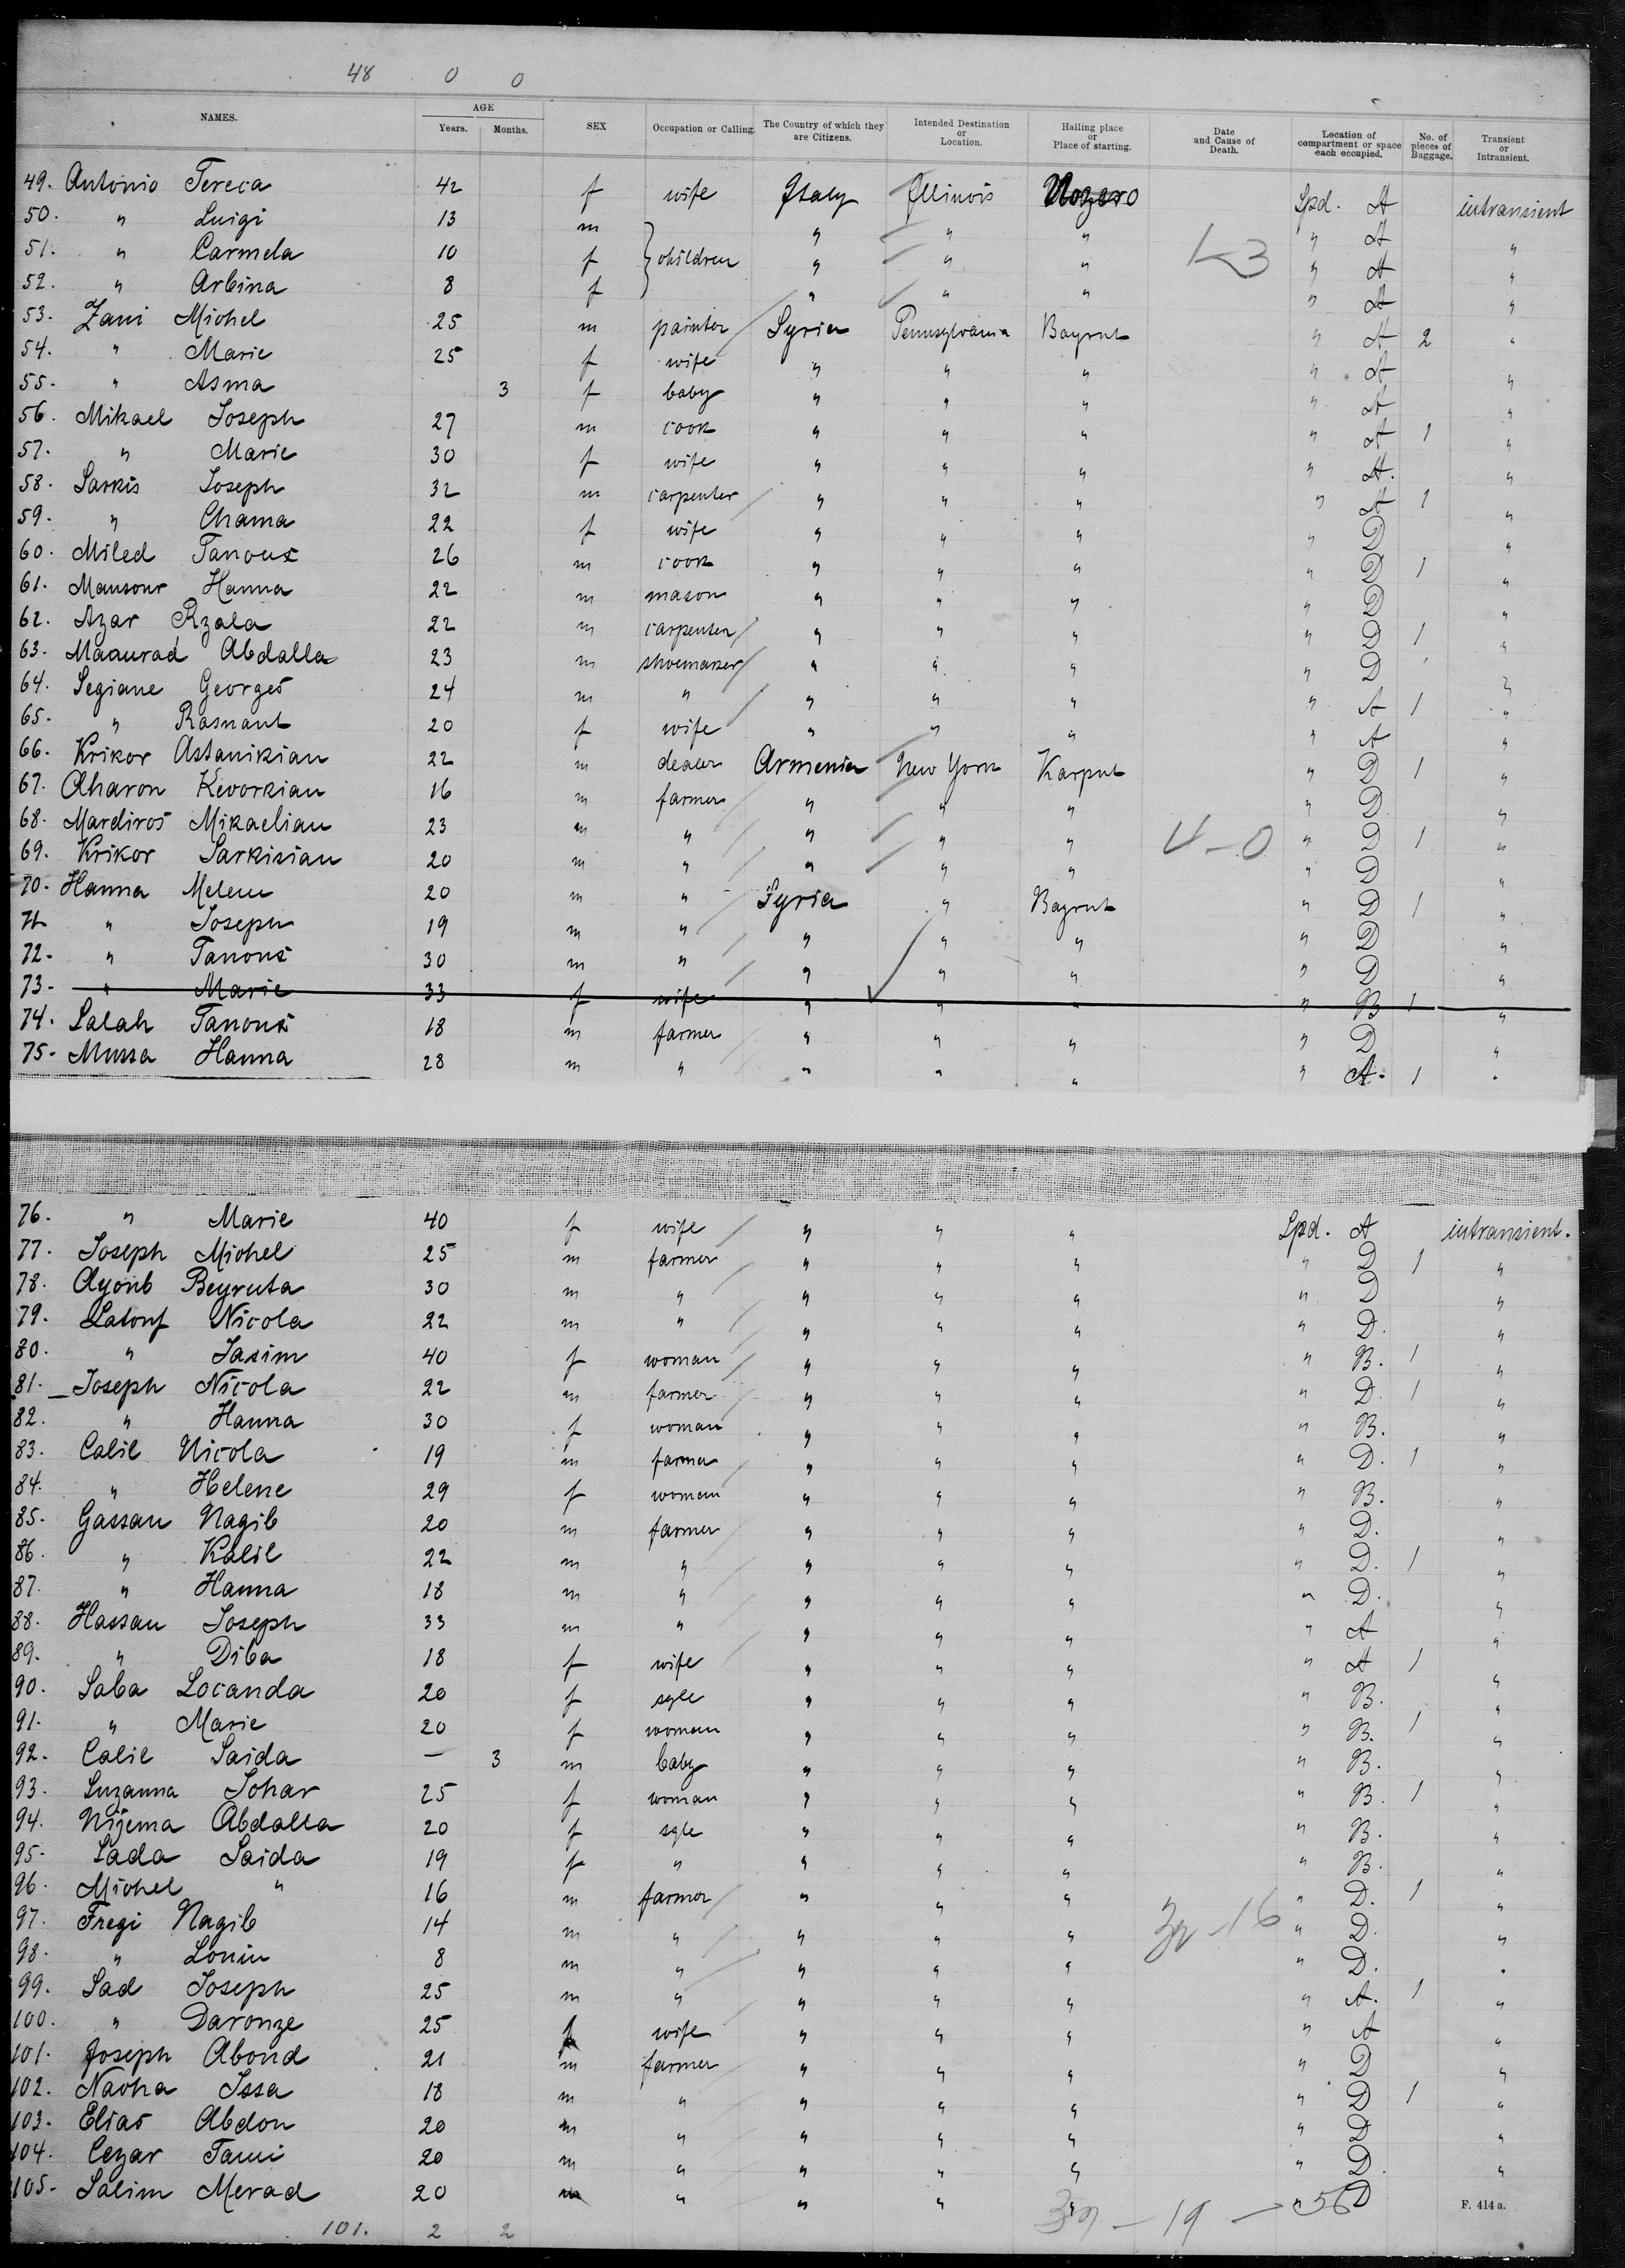 48 0 0
NAMES. AGE Years. Months. SEX Occupation or Calling. The Country of which they are Citizens. Intended Destination or Location. Hailing place or Place of starting. Date and Cause of Death. Location of compartment or space each occupied. No. of pieces of Baggage. Transient or Intransient.
49. Antonio Tereca 42 f wife Italy Illinois Spd. A intransient
50. " Luigi 13 m } children " " " " A "
51. " Carmela 10 f " " " 1-3 " A "
52. " Arbina 8 f " " " " A "
53. Zani Michel 25 m painter Syria Pennsylvania Bayrut " A 2 "
54. " Marie 25 f wife " " " " A "
55. " Asma 3 f baby " " " " A "
56. Mikael Joseph 27 m cook " " " " A 1 "
57. " Marie 30 f wife " " " " A. "
58. Sarkis Joseph 32 m carpenter " " " " A 1 "
59. " Chama 22 f wife " " " " D "
60. Miled Tanous 26 m cook " " " " D 1 "
61. Mansour Hanna 22 m mason " " " " D "
62. Azar Rzala 22 m carpenter " " " " D 1 "
63. Abdalla 23 m shoemaker " " " " D "
64. Segiane Georges 24 m " " " " " A 1 "
65. " 20 f wife " " " " A "
66. Krikor Astanikian 22 m dealer Armenia New York Karput " D 1 "
67. Aharon Kevorkian 16 m farmer " " " " D "
68. Mardiros Mikaelian 23 m " " " " 4-0 " D 1 "
69. Krikor Sarkisian 20 m " " " " " D "
70. Hanna Melem 20 m " Syria " Bayrut " D 1 "
71 " Joseph 19 m " " " " " D "
72. " Tanous 30 m " " " " " D "
73. " Marie 33 f wife " " " " B 1 "
74. Salah Tanous 18 m farmer " " " " D "
75. Mussa Hanna 28 m " " " " " A. 1 "
76. " Marie 40 f wife " " " Spd. A intransient.
77. Joseph Michel 25 m farmer " " " " D 1 "
78. Ayoub Beyruta 30 m " " " " " D "
79. Latouf Nicola 22 m " " " " " D. "
80. " Jasim 40 f woman " " " " B. 1 "
81. Joseph Nicola 22 m farmer " " " " D. 1 "
82. " Hanna 30 f woman " " " " B. "
83. Calil Nicola 19 m farmer " " " " D. 1 "
84. " Helene 29 f woman " " " " B. "
85. Gassan Nagib 20 m farmer " " " " D. "
86. " Kalil 22 m " " " " " D. 1 "
87. " Hanna 18 m " " " " " D. "
88. Hassan Joseph 33 m " " " " " A "
89. " Diba 18 f wife " " " " A 1 "
90. Saba Locanda 20 f sgle " " " " B. "
91. " Marie 20 f woman " " " " B. 1 "
92. Calil Saida — 3 m baby " " " " B. "
93. Suzanna Johar 25 f woman " " " " B. 1 "
94. Nijema Abdalla 20 f sgle " " " " B. "
95. Sada Saida 19 f " " " " " B. "
96. Michel " 16 m farmer " " " " D. 1 "
97. Fregi Nagib 14 m " " " " 32-16 " D. "
98. " Lonin 8 m " " " " " D. "
99. Sad Joseph 25 m " " " " " A. 1 "
100. " Daronze 25 f wife " " " " A "
101. Joseph Aboud 21 m farmer " " " " D "
102. Naoha Issa 18 m " " " " " D 1 "
103. Elias Abdon 20 m " " " " " D "
104. Cezar Tami 20 m " " " " " D. "
105. Salim Merad 20 m " " " " " D F. 414 a.
101. 2 2 37 - 19 - 56